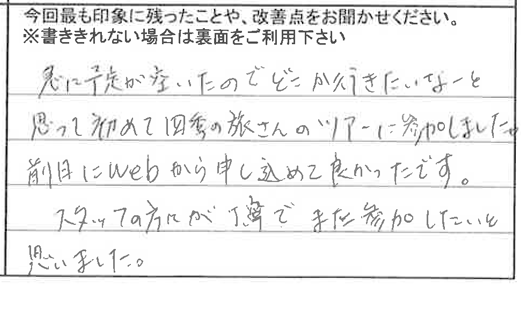 今回最も印象に残ったことや、改善点をお聞かせください。
※書ききれない場合は裏面をご利用下さい
急に予定が空いたのでどこか行きたいなーと
思って初めて四季の旅さんのツアーに参加しました。
前日にwebから申し込めて良かったです。
スタッフの方々が丁寧でまた参加したいと
思いました。